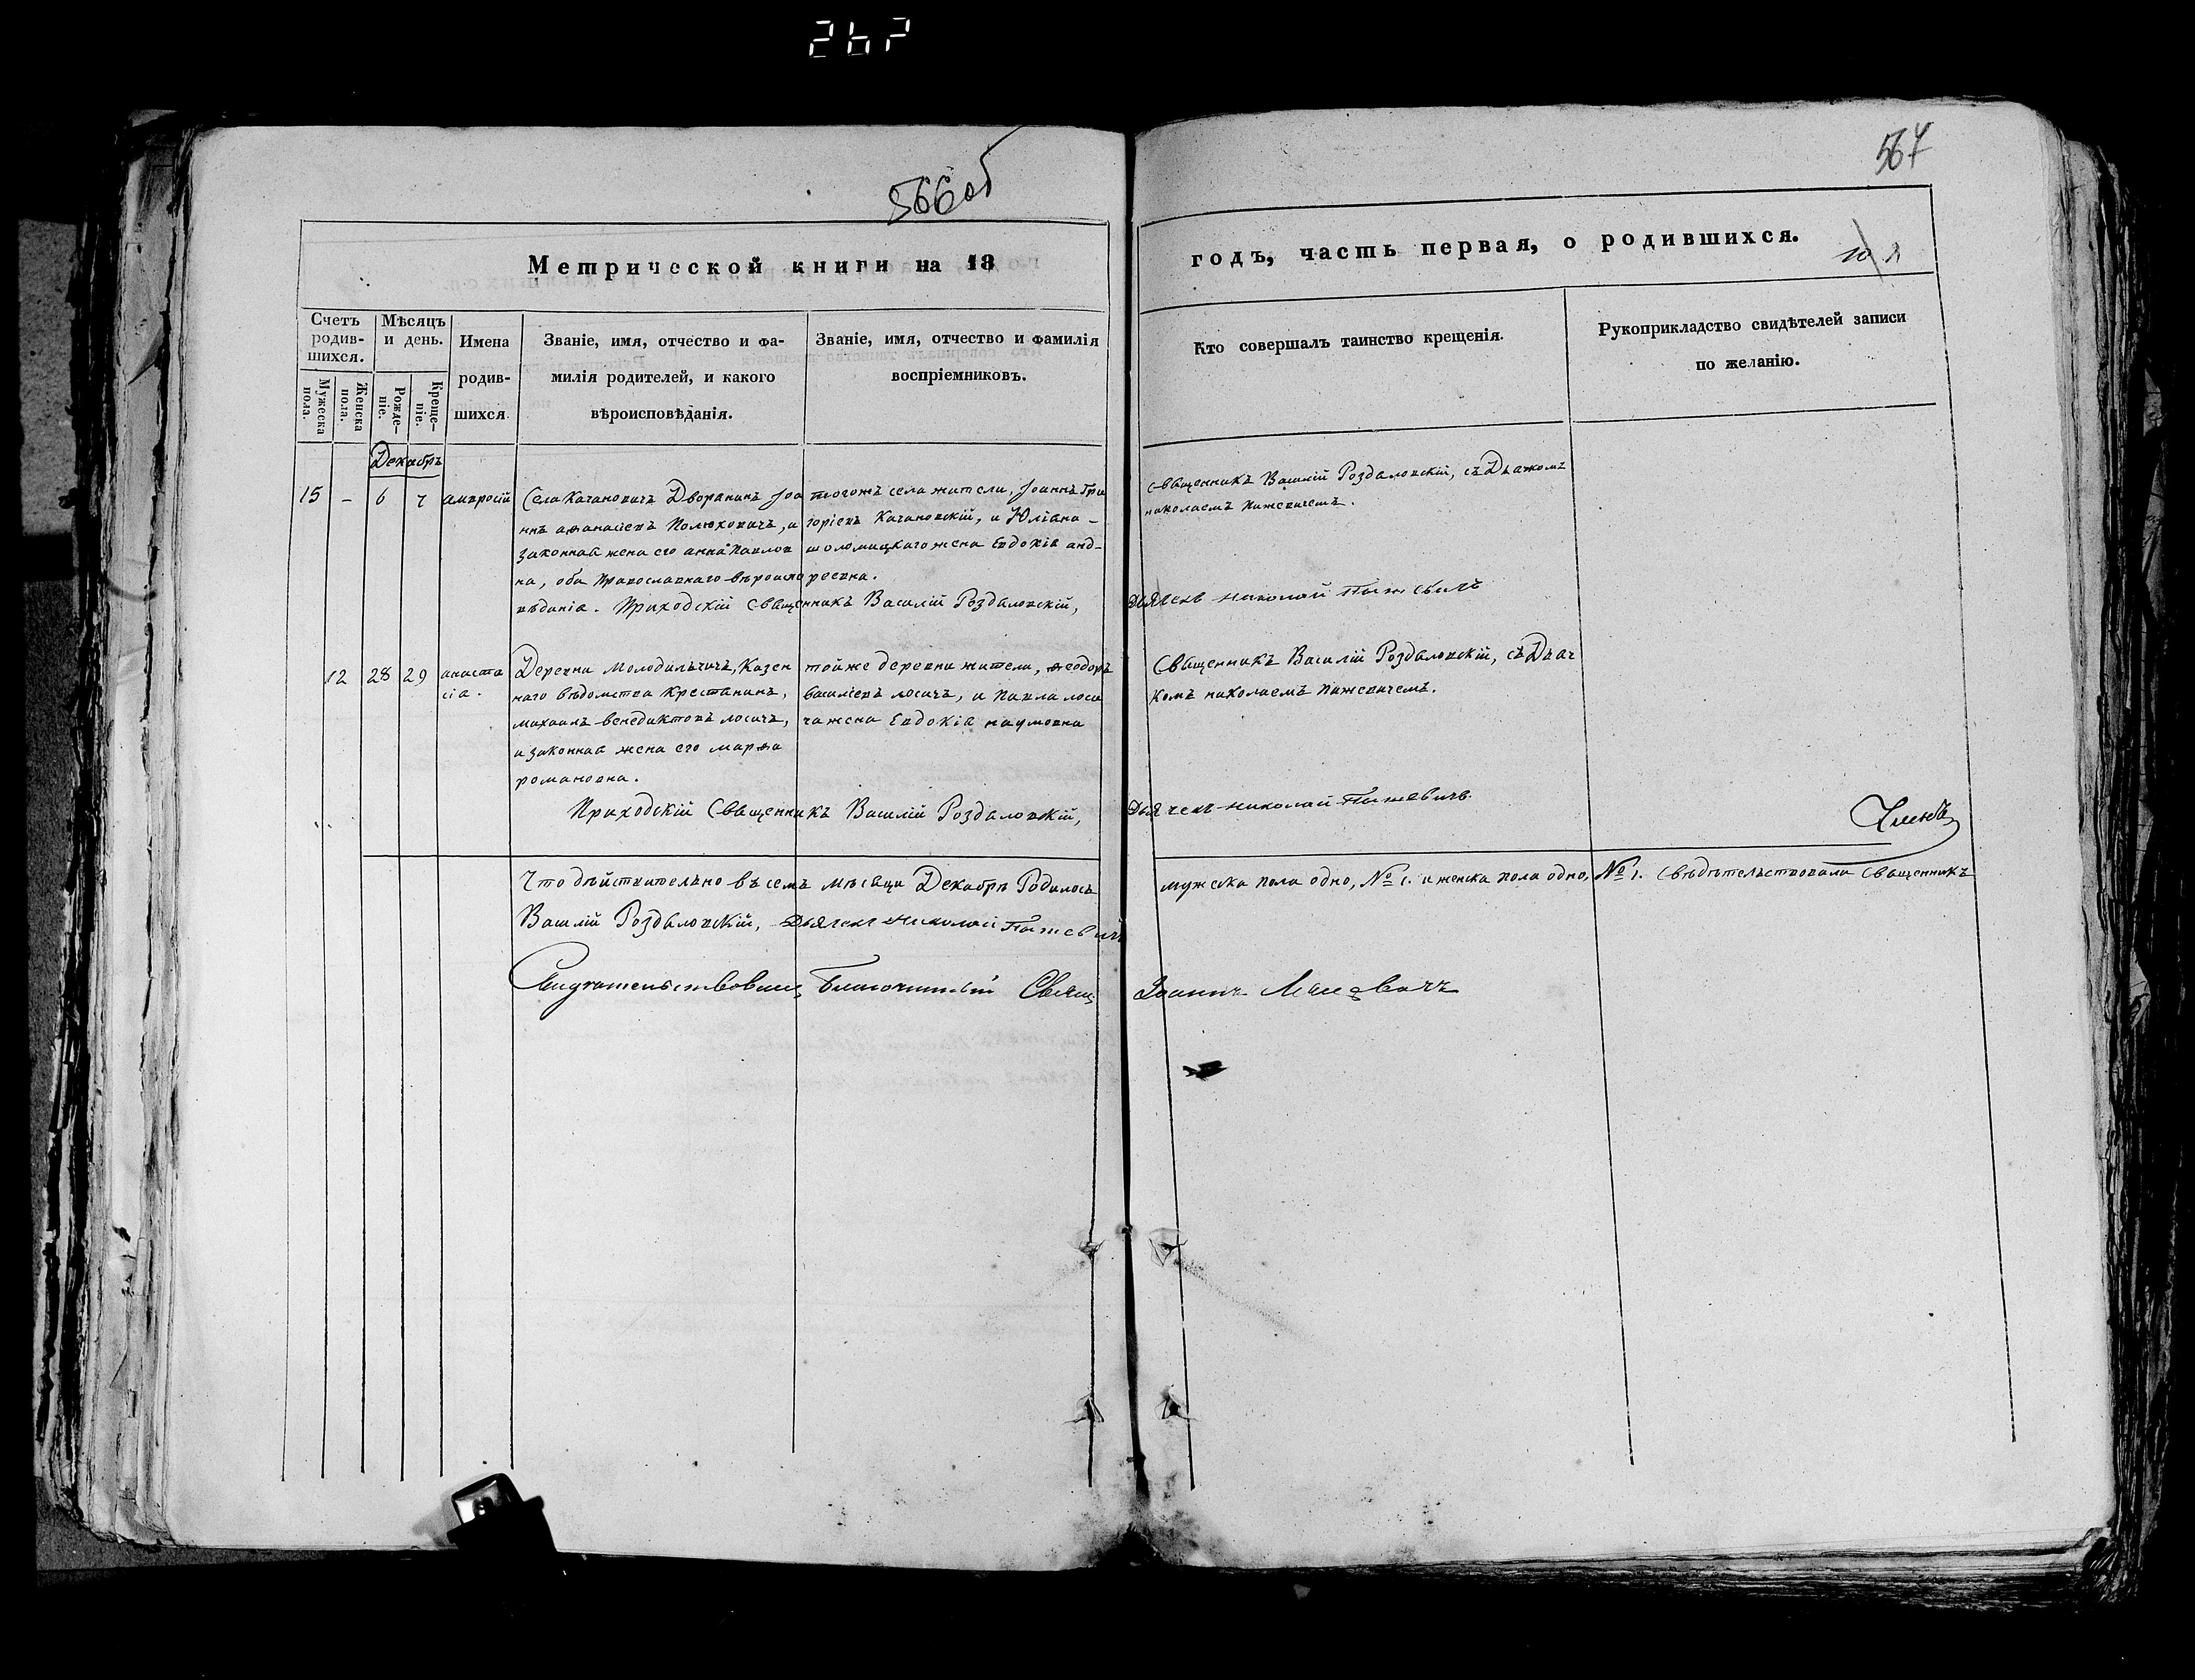 267
566 об
567
Метрической книги на 18
годъ, часть первая, о родившихся.
Счетъ родив-шихся.
Мужеска пола.
Женска пола.
Мѣсяцъ и день.
Рожде-ніе.
Креще-ніе.
Имена
родив-
шихся
Званіе, имя, отчество и фа-
милія родителей, и какого
вѣроисповѣданія.
Званіе, имя, отчество и фамилія
воспріемниковъ.
Кто совершалъ таинство крещенія.
Рукоприкладство свидѣтелей записи
по желанію.
Декабрь
15 – 6 7 амвросій
Села Качановичъ Дворянинъ Іоа
ннъ аѳанасіевъ Полюховичъ, и
законная жена его анна Павлов
на, оба Православнаго вѣроиспо
вѣданія.
тогожъ села жители, Іоаннъ Гри
горіевъ Качановскій, и Юліана –
шоломицкаго жена Евдокія анд-
реевна.
Священникъ Василій Роздаловскій, съ Дьячкомъ
николаемъ Пижевичемъ.
Приходскій Священникъ Василій Роздаловскій,
Дьячекъ николай
12 28 29 анаста
сіа.
Деревни Молодильчичъ, Казен
наго вѣдомства Крестьянинъ,
михаилъ венедиктовъ лосичъ,
и законная жена его марѳа
романовна.
тойже деревни жители, ѳеодоръ
василіевъ лосичъ, и Павла лоси
ча жена Евдокія наумовна
Священникъ Василій Роздаловскій, съ Дьяч
комъ николаемъ Пижевичемъ.
Приходскій Священникъ Василій Роздаловскій,
Дьячекъ николай Пижевичъ
Что дѣйствительно въ семъ мѣсяци Декабрѣ Родилось мужеска пола одно, № 1. и женска пола одно, № 1. свидѣтельствовали Священникъ
Василій Роздаловскій, Дьячекъ Николай Пижевичъ
Благочинный Свящ Іоаннъ